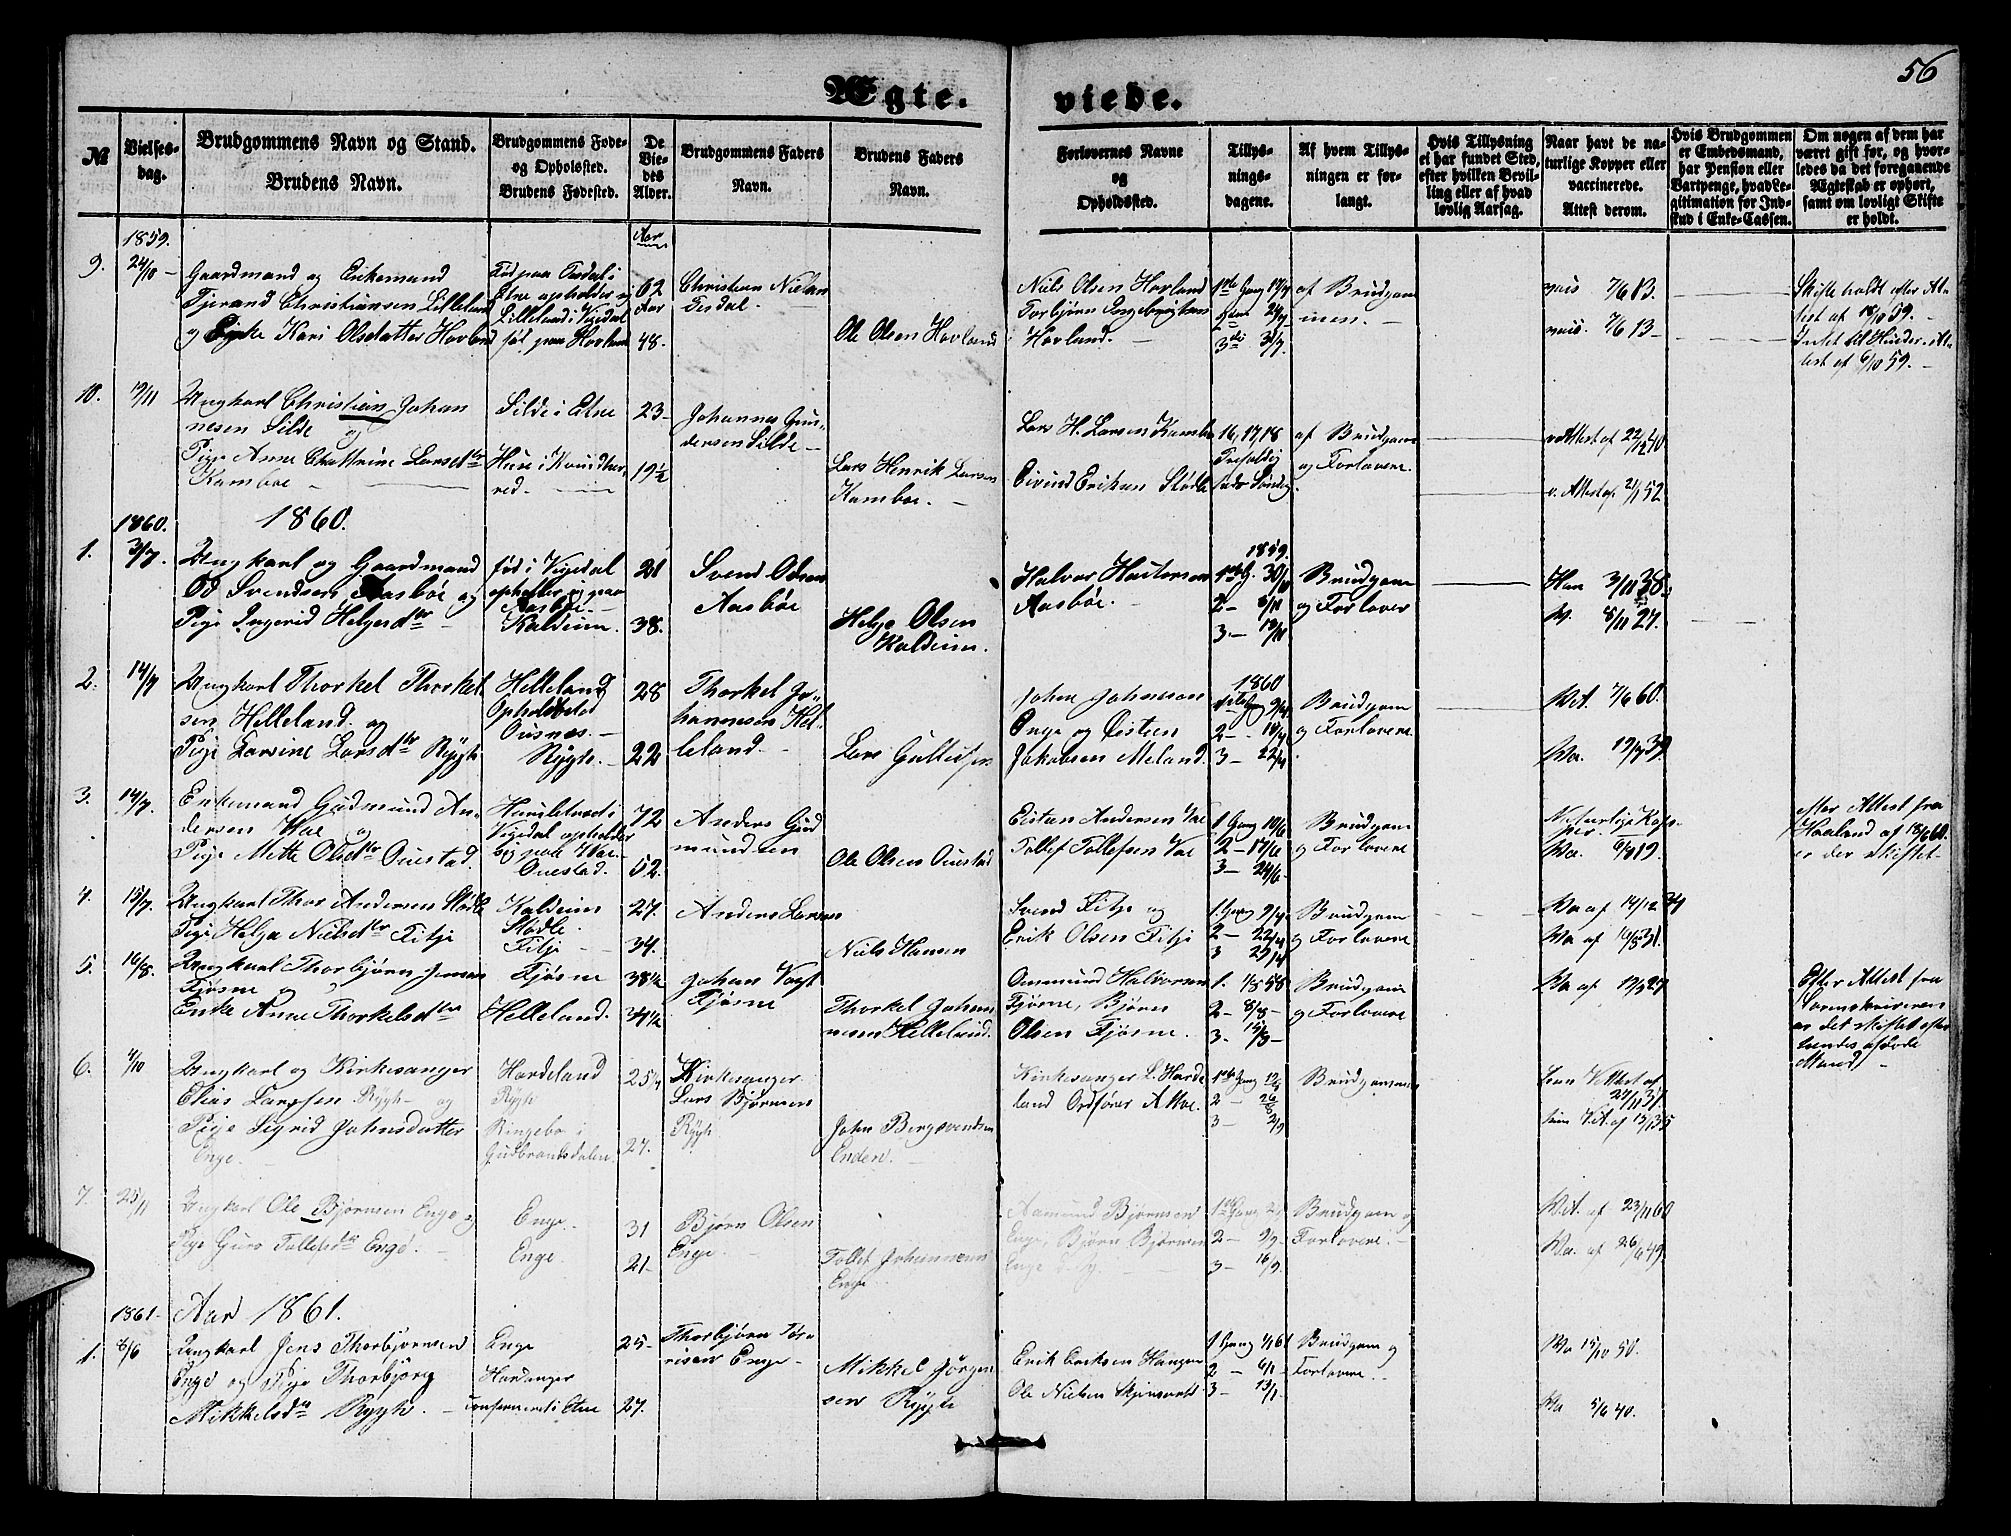 56
Ægte.
viede.
№
Vielses-
dag.
Brudgommens Navn og Stand.
Brudens Navn.
Brudgommens Føde-
og Opholdsted.
Brudens Fødested.
De
Vie-
des
Alder.
Brudgommens Faders
Navn.
Brudens Faders
Navn.
Forlovernes Navne
og
Opholdsted.
Tillys-
nings-
dagene.
Af hvem Tillys-
ningen er for-
langt.
Hvis Tillysning
ei har fundet Sted,
efter hvilken Bevil-
ling eller af hvad
lovlig Aarsag.
Naar havt de na-
turlige Kopper eller
vaccinerede.
Attest derom.
Hvis Brudgommen
er Embedsmand,
har Pension eller
Vartpenge, hvad Le-
gitimation for Ind-
skud i Enke-Cassen.
Om nogen af dem har
været gift før, og hvor-
ledes da det foregaaende
Ægteskab er ophørt,
samt om lovligt Skifte
er holdt.
1859.
Aar
9.
24/10
Gaardmand og Enkemand
Tjerand Christiansen Lilleland
og Enke Kari Olsdatter Hovland
Etne opholder sig
Lilleland i Vigedal
fød paa Hovland
62
Aar
48.
Christian Nielsen
Tesdal.
Ole Olsen Hovland
Niels Olsen Hovland
Torbjørn Ingebrigtsen
Hovland.
1ste Gang 17/7
2den 24/7
3die 31/7
af Brudgom
men.
7/6 13.
7/6 13
Skifte holdt efter At-
test af 18/10 59.
Intet til Hinder. At-
test af 6/10 59.
10.
19/11
Ungkarl Christian Johan
nesen Silde
og
Pige Anne Cathrine Larsdtr
Kamboe
Silde i Etne
Huse i Kvindher
red.
23
19½
Johannes Gun
dersen Silde
Lars Henrik Larsen
Kamboe.
Lars H. Larsen Kambo
Eivind Eriksen Stødle
16, 17, 18
af Brudgom
og Forlovere.
v. Attest af 22/12 40
v. Attest af 21/1 52
1860.
1860.
1.
3/7
Ungkarl og Gaardmand
Od Svendsen Aasbøe og
Pige Ingerid Helgesdtr
fød i Vigedal
opholder sig paa
Aasbøe.
Kaldeim.
21
38.
Svend Odsen
Aasbøe
Helge Olsen
Kaldeim.
Halvor
Aasbøe.
1859.
30/10
2 - 6/11
3. - 13/11
Brudgom
og Forlover
Han 3/11 38.
V. 8/11 27.
2.
14/7
Ungkarl Thorkel Thorkel
sen Helleland. og
Pige Larsine Larsdtr Rygh
Helleland
Opholdsted
Ousnæs.
Rygh.
28
22
Thorkel Jo-
hannesen Hel-
leland.
Lars Gullufsen
John Johnsen
Enge og Østen
Jakobsen Meland.
1860
2 -
3 - 22/4
Brudgom
og Forlovere
Vet. 7/6 60.
Va. 19/9 39.
3.
14/7
Enkemand Gudmund An-
dersen Vae
og
Pige Mette Olsdtr Ouestad.
Humletvedt i
Vigedal opholder
sig paa Vae.
Ouestad.
72
52.
Anders Gud
mundsen
Ole Olsen Ouestad
Eistan Andersen Vae
Tollef Tollefsen Vae
1 Gang 10/6
2 - 17/6
3 - 24/6.
Brudgom
og Forlovere
Naturlige Kop-
per.
Va. 6/9 19.
efter Attest fra
Haaland af 18/6 60.
er der skiftet
4.
15/7
Ungkarl Thor Andersen Stødle
Pige Helga Nielsdtr Fitje
Kaldeim
Stødle.
Fitje
27.
34.
Anders Larsen
Niels Hansen
Svend Fitje og
Erik Olsen Fitje
1. Gang
2 - 22/4
3 29/4
Brudgom
og Forlovere
Va af 14/12 34
Va af 16/8 31.
5.
16/8
Ungkarl Thorbjørn Jensen
Fjøsne og
Enke Anne Thorkelsdtr
Fjøsne
Helleland.
38½
34½
Johan Vogt
Fjøsne
Thorkel Johan
nesen Helleland.
Aamund Halvorsen
Fjøsne, Bjørn
Olsen Fjøsne.
1. 1/8 58
2 - 8/8
3. 15/8
Brudgom
og Forlovere
Va af 19/9 27
Efter Attest fra
Sorenskriveren
er det skiftet efter
hendes afdøde
Mand,
6.
4/10
Ungkarl og Kirkesanger
Elias Larssen Rygh og
Pige Sigrid Johnsdatter
Enge.
Hardeland
Rygh
Ringebo i
Gudbrandsdalen.
25¼
27.
Kirkesanger
Lars Bjørnsen
Rygh.
John Bergsvendsen
Enden.
Kirkesanger L. Harde
land Ordfører A Vae.
1ste Gang
2 - 26/8
3 - 2/9
Brudgommen
27/11 37.
15/1 35
7.
25/11
Ungkarl Ole Bjørnsen Enge og
Pige Guro Tollefsdtr Enge.
Enge.
Enge.
31
21
Bjørn Olsen
Enge.
Tollef Johannesen
Enge.
Aamund Bjørnsen
Enge, Bjørn Bjørnsen
Enge
1ste Gang
2 - 9/9
3 - 16/9
Brudgom og
Forlovere.
Vet. af 23/11 60
Va. af 26/6 49.
1861
Aar 1861.
1.
8/6
Ungkarl Jens Thorbjørnsen
Enge og Pige Thorbjørg
Mikkelsdtr Rygh.
Enge
Hardanger
confirmeret i Etne
25
27.
Thorbjørn Tør-
risen Enge.
Mikkel Jørgen
sen Rygh
Erik Eriksen Haugen
Ole Nielsen
1 Gang 1/1 61
2 - 6/1
3 - 13/1
Brudgom og
Forlovere.
Va 15/10 50.
Va 5/6 40.